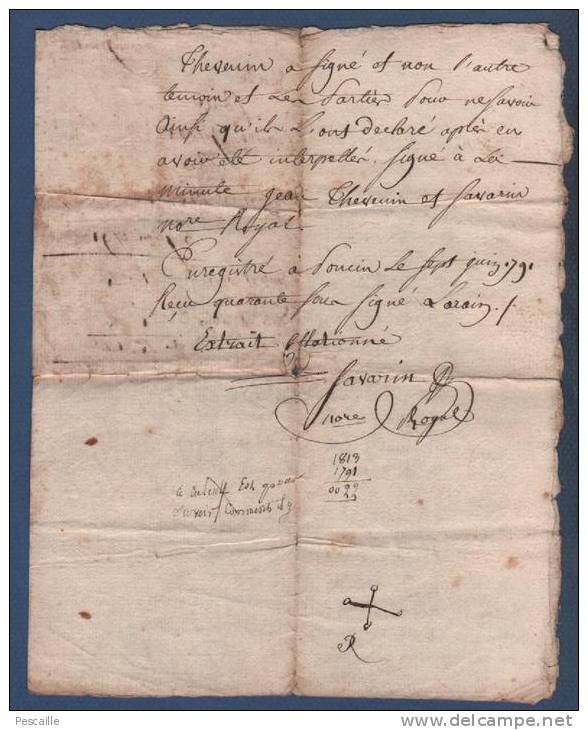 Thevenin a signé et non l'autre
temoin et les Parties pour ne savoir
Ainsi qu'ils L'ont declaré après en
avoir eté interpellés. signé à La
minute Jean Thevenin et Savarin
nore Royal.
Enregistré à Poncin Le sept juin 791
Reçu quarante sous signé Larain./
Extrait
Savarin
nore Royal
1813
1791
00 22
22
R
Pescaille
www.delcampe.net